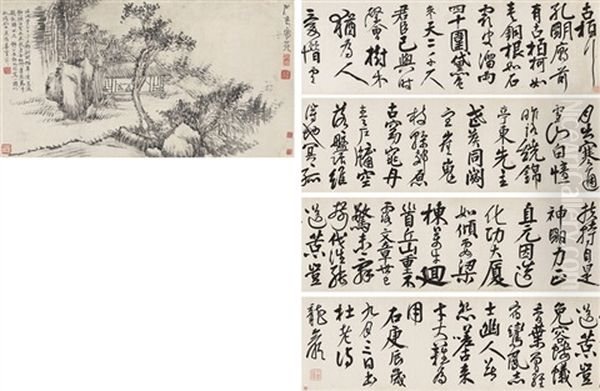 古柏行
孔明廟前
有古柏柯如
青銅根如石
霜皮溜雨
四十圍黛色
參天二千尺
君臣已與時
際會樹木
猶為人
愛惜雲
月出寒通
雪山白憶
昨路繞錦
亭東先主
武侯同閟
宮崔嵬
枝幹郊原
古窈窕丹
青戶牖空
落盤踞雖
得地冥孤
扶持自是
神明力正
直元因造
化功大廈
如傾要梁
棟萬牛迴
首丘山重不
露文章世已
驚未辭
剪伐誰能
送苦豈
送苦豈
免容螻蟻
香葉曾經
宿鸞鳳志
士幽人莫
怨嗟古來
材大難為
用
右庚辰歲
九月三日書
杜老詩
龍巖